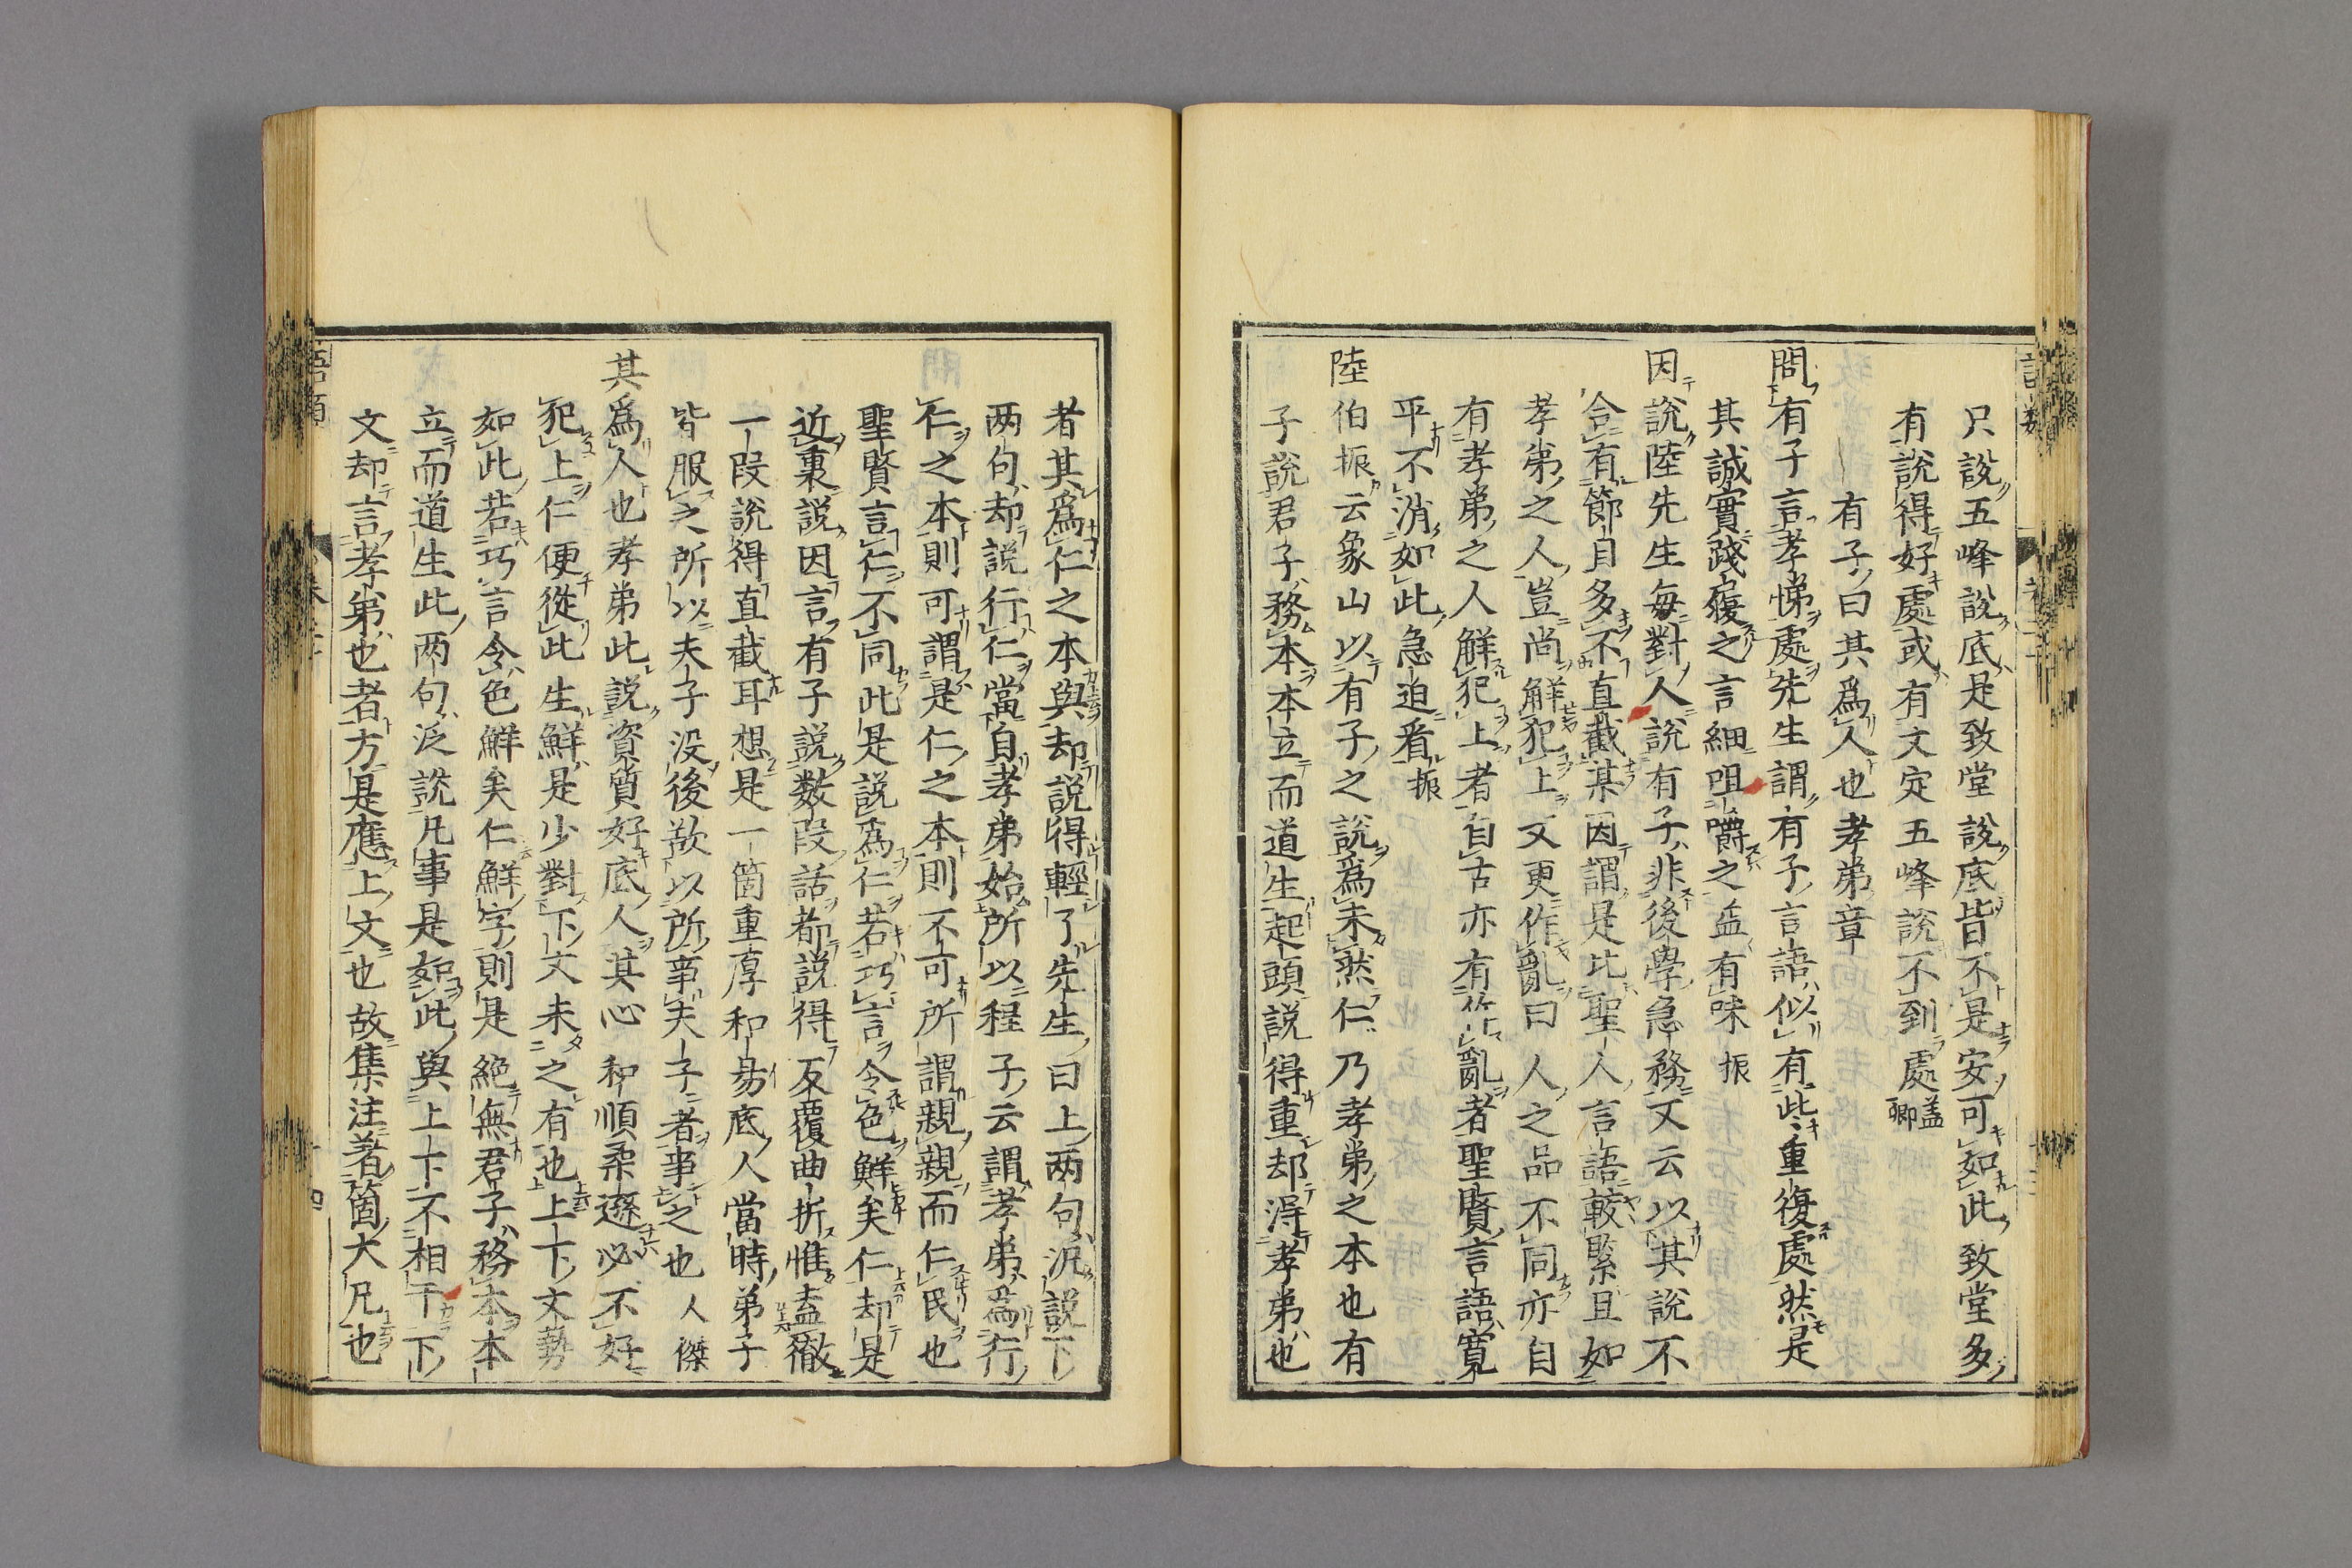 只說五峰說底是致堂說底皆不是安可如此致堂多
有說得好處或有文定五峰說不到處蓋卿
有子曰其爲人也孝弟章
問有子言孝悌處先生謂有子言語似有此重復處然是
其誠實踐履之言細咀嚼之益有味振
因說陸先生每對人說有子非後學急務又云以其說不
合有節目多不直截某因謂是比聖人言語較緊且如
孝弟之人豈尚解犯上又更作亂曰人之品不同亦自
有孝弟之人解犯上者自古亦有作亂者聖賢言語寬
平不消如此急迫看振
陸伯振云象山以有子之說爲未然仁乃孝弟之本也有
子說君子務本本立而道生起頭說得重却得孝弟也
者其爲仁之本與却說得輕了先生曰上两句泛說下
两句却説行仁當自孝弟始所以程子云謂孝弟爲行
仁之本則可謂是仁之本則不可所謂親親而仁民也
聖賢言仁不同此是説爲仁若巧言令色鮮矣仁却是
近裏説因言有子説数段話都説得反覆曲折惟盍徹
一段說得直截耳想是一箇重厚和易底人當時弟子
皆服之所以夫子没後欲以所事夫子者事之也人傑
其爲人也孝弟此說資質好底人其心和順柔遜必不好
犯上仁便從此生鮮是少對下文未之有也上下文勢
如此若巧言令色鮮矣仁鮮字則是絕無君子務本本
立而道生此两句泛說凡事是如此與上下不相干下
文却言孝弟也者方是應上文也故集注著箇大凡也